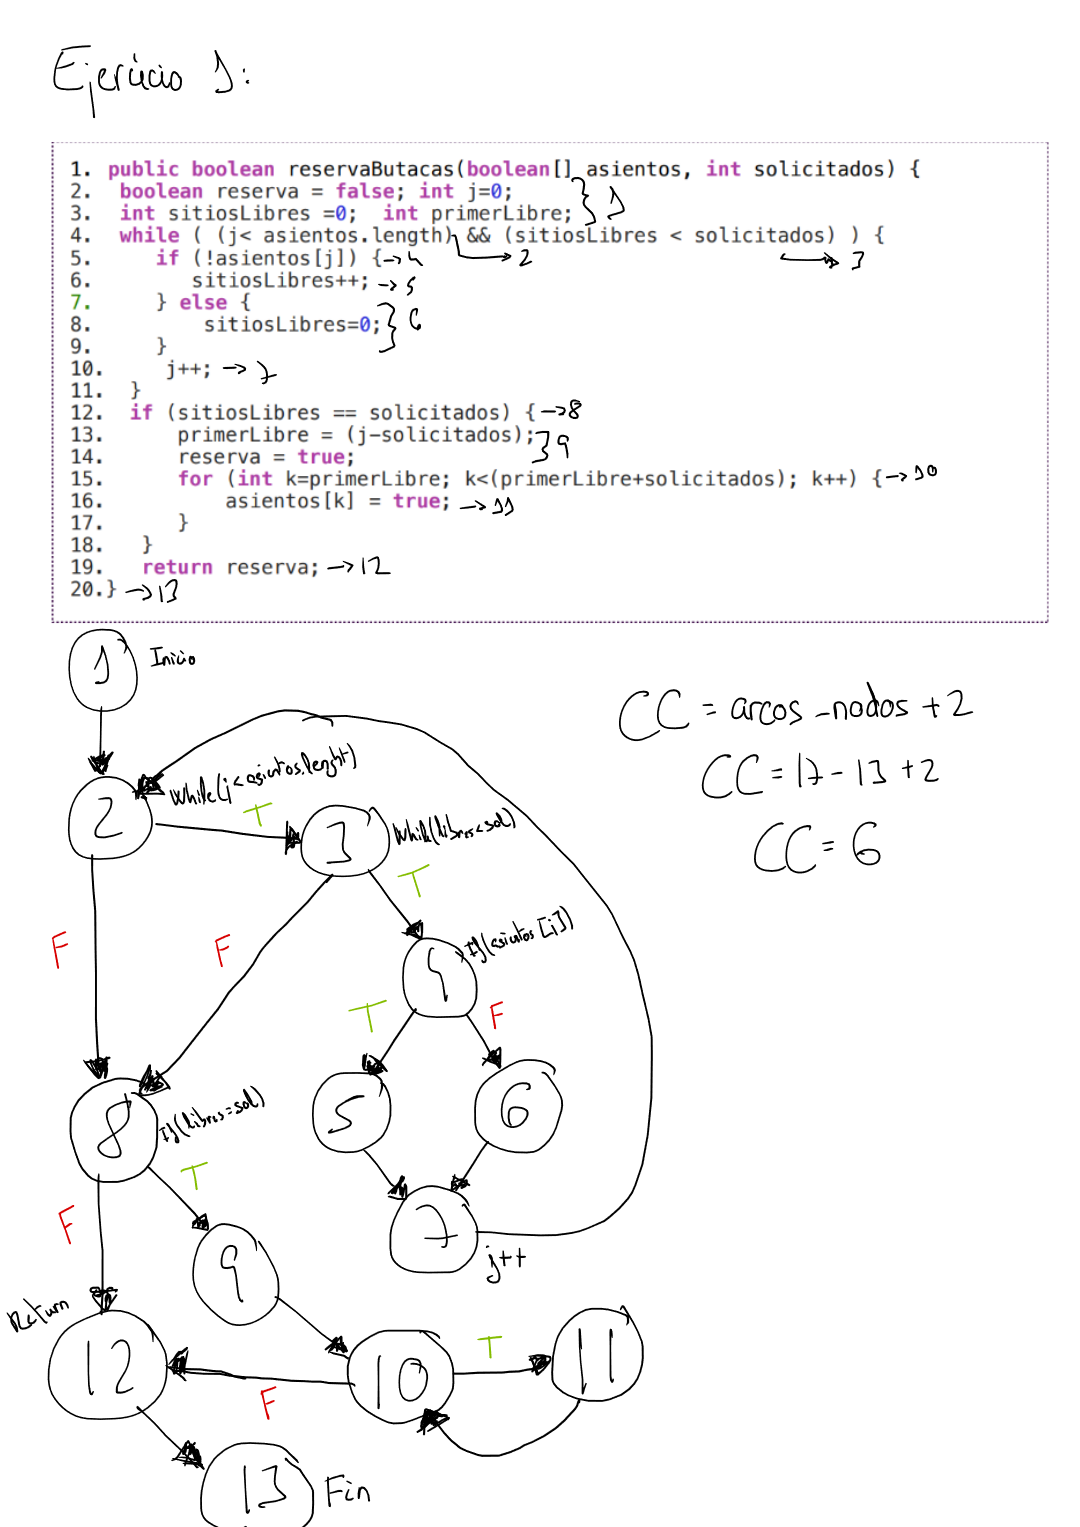 Ejercicio 1:
1. public boolean reservaButacas(boolean[] asientos, int solicitados) {
2. boolean reserva = false; int j=0;
3. int sitiosLibres =0; int primerLibre; } 1
4. while ( (j< asientos.length) && (sitiosLibres < solicitados) ) {
5. if (!asientos[j]) { → 4 → 2 → 3
6. sitiosLibres++; → 5
7. } else {
8. sitiosLibres=0; } 6
9. }
10. j++; → 7
11. }
12. if (sitiosLibres == solicitados) { → 8
13. primerLibre = (j-solicitados); } 9
14. reserva = true;
15. for (int k=primerLibre; k<(primerLibre+solicitados); k++) { → 10
16. asientos[k] = true; → 11
17. }
18. }
19. return reserva; → 12
20.} → 13
1 Inicio
CC = arcos - nodos + 2
While(j<asientos.lenght)
CC = 17 - 13 + 2
2 T 3 While(libres<sol)
CC = 6
T
F F If(asientos[j])
4
T F
5 6
8 If(libres=sol)
T
F
7
9 j++
Return
12 10 T 11
F
13 Fin